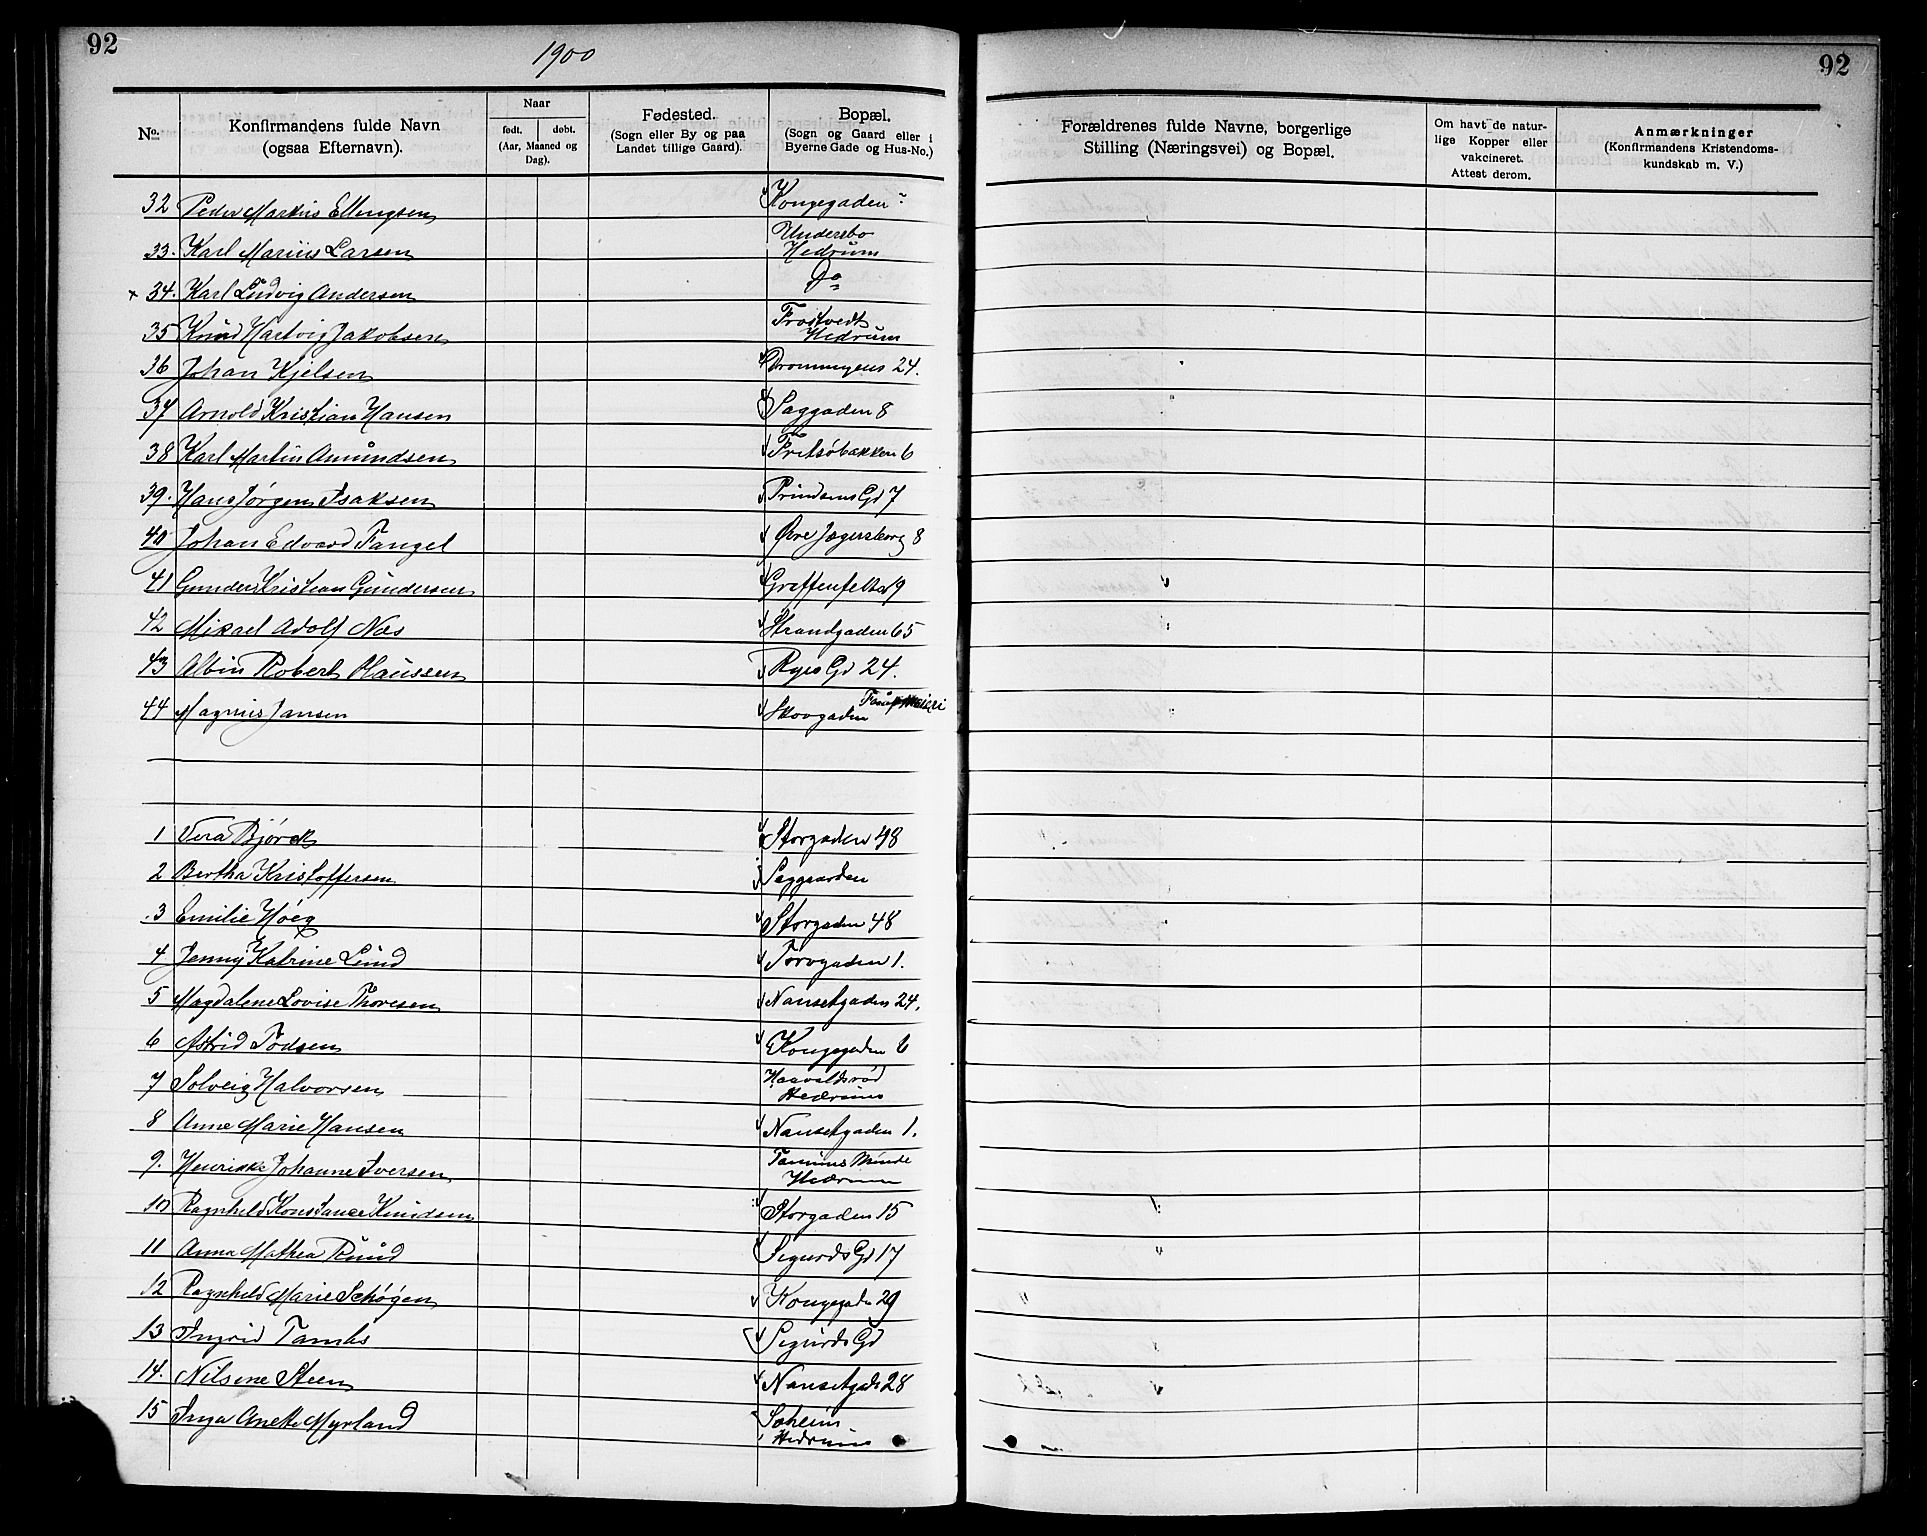 92
1900
92
No.
Konfirmandens fulde Navn
(ogsaa Efternavn).
Naar
født. døbt.
(Aar, Maaned og
Dag).
Fødested.
(Sogn eller By og paa
Landet tillige Gaard).
Bopæl.
(Sogn og Gaard eller i
Byerne Gade og Hus-No.)
Forældrenes fulde Navne, borgerlige
Stilling (Næringsvei) og Bopæl.
Om havt de natur-
lige Kopper eller
vakcineret.
Attest derom.
Anmærkninger
(Konfirmandens Kristendoms-
kundskab m. V.)
32 Peder Markus Ellingsen Kongegaden
33. Karl Marius Larsen Undersbo
Hedrum
34. Karl Ludvig Andersen Do
35 Knud Hartvig Jakobsen Frostvedt
Hedrum
36 Johan Kjelsen 24.
37 Arnold Kristian Hansen Saggaden 8
38 Karl Martin Amundsen Fritsøbakken 6
39. Hans Jørgen Isaksen Prindsens Gd 7
40 Johan Edvard Tangel Øvre Jegersborg 8
41 Gunder Kristian Gundersen 9
42 Mikael Adolf Næs Strandgaden 65
43 Albin Robert Claussen Ryes Gd 24.
44 Magnus Jansen Skovgaden
1 Vera Bjørck Storgaden 48
2 Bertha Kristoffersen Saggaarden
3 Emilie Høeg Storgaden 48
4 Jenny Katrine Lund Torvgaden 1.
5 Magdalene Lovise Thoresen Nansetgaden 24.
6 Astrid Todsen Kongegaden 6
7 Solveig Halvorsen Haavaldsrød
Hedrum
8 Anne Marie Hansen Nansetgaden 1.
9. Henrikke Johanne Iversen Tanums Minde
Hedrum
10 Ragnhild Konstance Knudsen Storgaden 15
11 Anna Mathea Ruud Sigurds Gd 17
12 Ragnhild Marie Schøgen Kongegaden 29
13 Ingrid Tambs Sigurds Gd
14. Nilsine Steen Nansetgade 28
15 Inga Anette Myrland Saheim
Hedrum